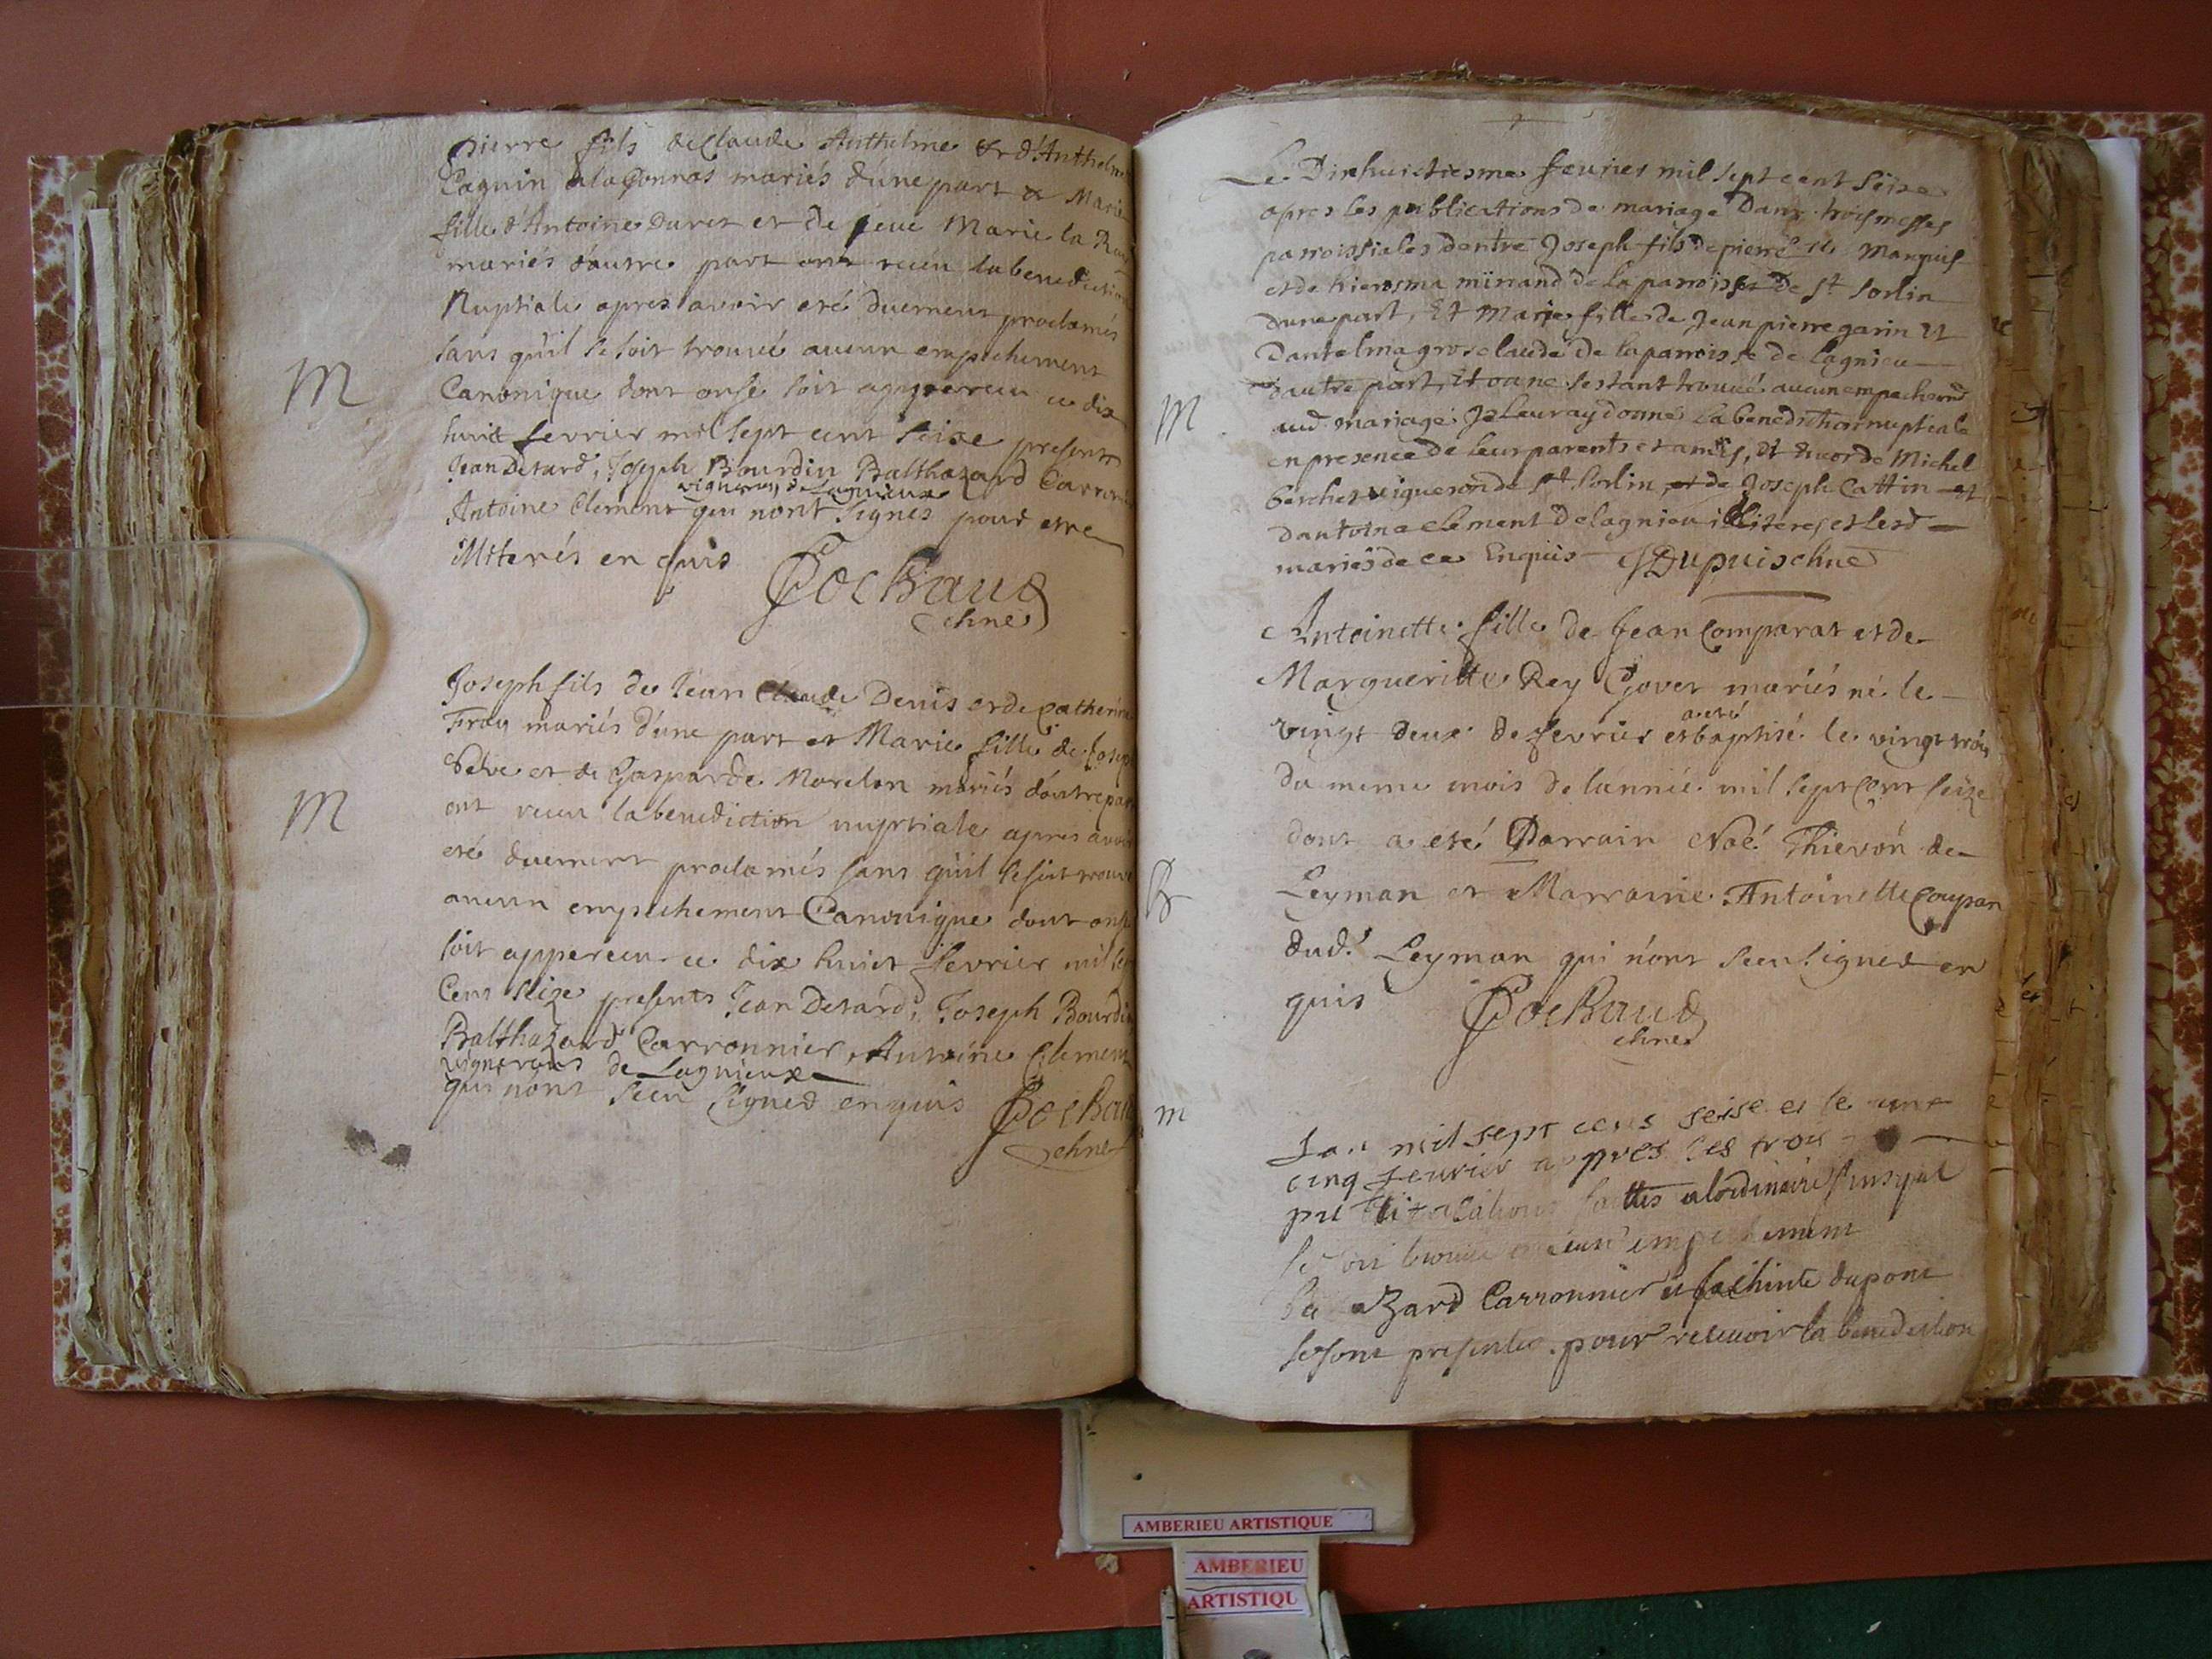 pierre fils de Claude Anthelme et d'Anthelm
Caguin a laGonnas mariés d'une part et Marie
fille d'Antoine Duret et de feue Marie la
mariés d'autre part ont receu la benediction
Nuptiale apres avoir eté duement proclamés
sans qu'il se soit trouvé aucun empechement
M
Canonique dont on se soit apperceu ce dix
huict fevrier mil sept cent seize presents
Jean Detard, Joseph Bourdin Balthazard Carronn
vignerons de Lagnieux
Antoine Clement qui n'ont signés pour etre
illiterés en quis
Cochaud
chne
Joseph fils de Jean Claude Denis et de Catherine
Fray mariés d'une part et Marie fille de Josep
et de Gasparde Morelon mariés d'autre par
M
ont receu la benediction nuptiale apres avoir
eté duement proclamés sans qu'il se soit trouvé
aucun empechement Canonique dont on se
soit apperceu ce dix huict fevrier mil sep
Cens seize presents Jean Detard, Joseph Bourdin
Balthazard Carronnier, Antoine Clement
vignerons de Lagnieux
qui n'ont sceu signer en quis
Cochau
chne
Le Dixhuictiesme feurier mil sept cent seize
apres les publications de mariage Dans trois messes
parroissiales dentre Joseph fils de pierre Marquis
et de hierosma minand de la parroisse de St Sorlin
dune part, Et Marie fille de Jean pierre garin et
Dantelma grosclaude de la parroisse de lagnieu
dautre part, et oane sestant trouué aucun empechemt
M
aud. mariage Je leur ay donné la benediction nuptiale
en presence de leur parents et amis, et encor de Michel
berchet vigneron de St Sorlin, et de Joseph Cattin et
dantoine clement de lagnieu illiteres et lesd
mariés de ce Enquis JDupuis chne
Antoinette fille de Jean Comparat et de
Margueritte Rey Gover mariés né le
a eté
vingt deux de fevrier et baptisé le vingt trois
du meme mois de l'année mil sept cent seize
dont a eté Parrain Noé Thievon de
B
Leyman et Marraine Antoinette Coupar
dud. Leyman qui n'ont sceu signer en
quis
Cochaud
chne
m
Lan mil sept cens seise et le
cinq feurier appres les trois
publications faittes alordinaire sans quil
se soit trouué aucun empechement
Balthazard Carronnier et Jachinte dupont
se sont presentes pour receuoir la benediction
AMBERIEU ARTISTIQUE
AMBERIEU
ARTISTIQU